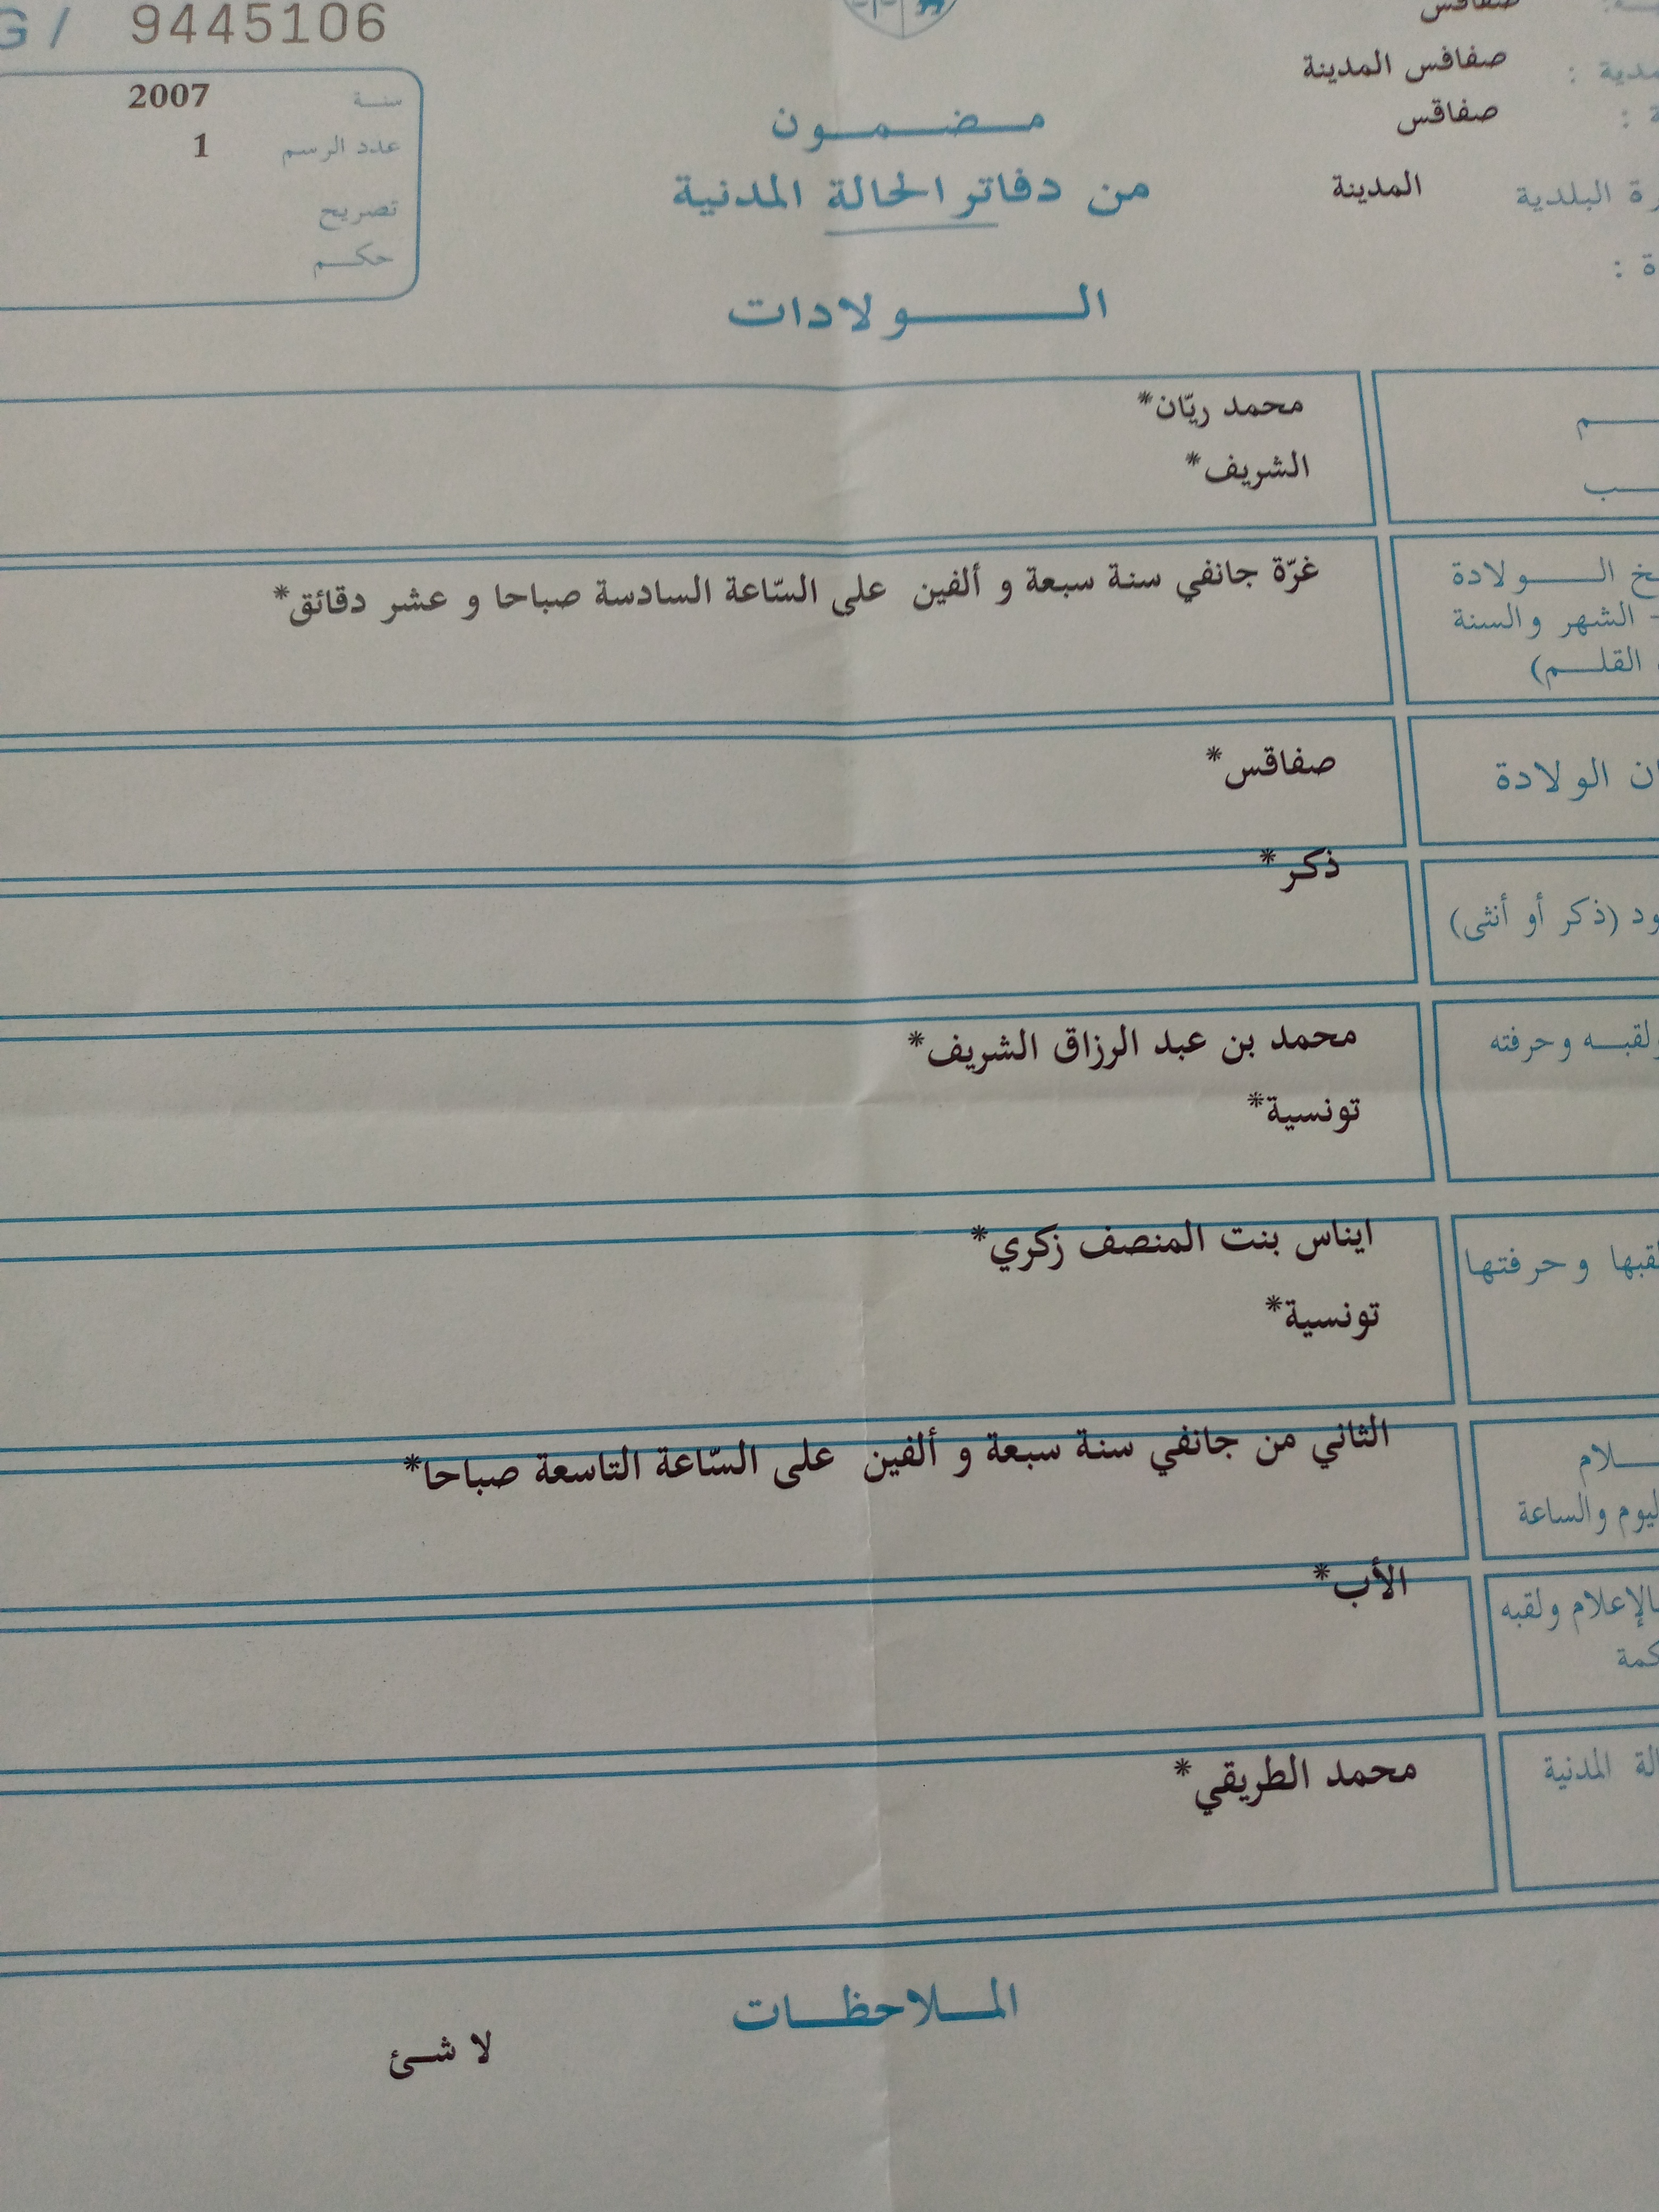 G / 9445106
سنة 2007
عدد الرسم 1
تصريح
حكم
صفاقس
صفاقس المدينة
صفاقس
البلدية المدينة
مضمون
من دفاتر الحالة المدنية
الولادات
محمد ريّان*
الشريف*
الولادة
غرّة جانفي سنة سبعة و ألفين على السّاعة السادسة صباحا و عشر دقائق*
- الشهر والسنة
القلم)
الولادة
صفاقس*
ذكر*
(ذكر أو أنثى)
ولقبه وحرفته
محمد بن عبد الرزاق الشريف*
تونسية*
وحرفتها
ايناس بنت المنصف زكري*
تونسية*
الثاني من جانفي سنة سبعة و ألفين على السّاعة التاسعة صباحا*
والساعة
الأب*
بالإعلام ولقبه
المدنية
محمد الطريقي*
الملاحظات
لا شئ